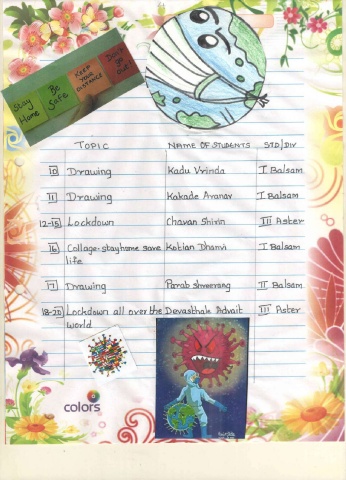 Stay Home
Be Safe
KEEP YOUR DISTANCE
Don't go out!
TOPIC NAME OF STUDENTS STD/DIV
10 Drawing Kadu Vrinda I Balsam
11 Drawing Kakade Aranav I Balsam
12-15 Lockdown Chavan Shirin III Aster
16 Collage-stayhome save Kotian Dhanvi I Balsam
life
17 Drawing Parab Shreerang II Balsam
18-20 Lockdown all over the Devasthale Advait III Aster
world
colors